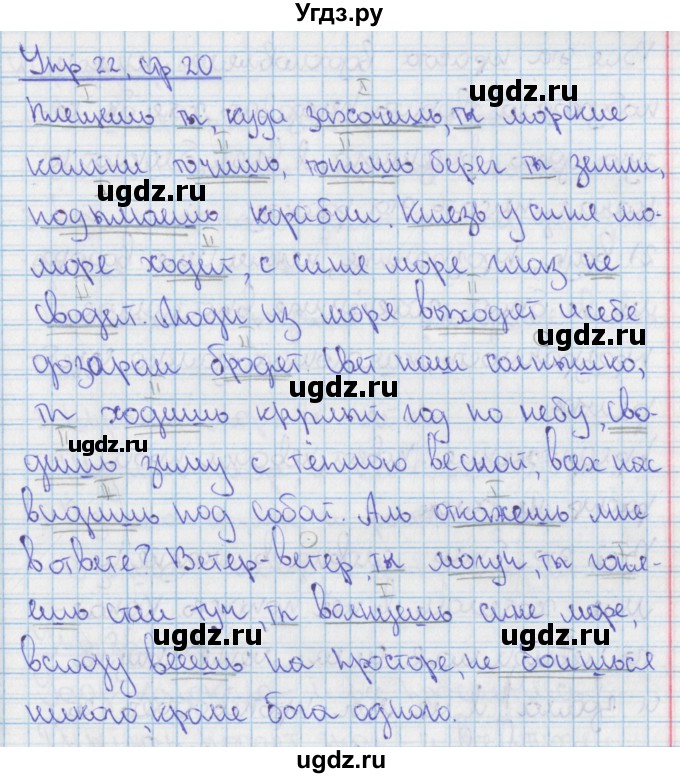 Угдз.ру
Упр 22, ср 20
Плещешь ты, куда захочешь, ты морские
камни точишь, топишь берег ты земли,
ugdz.ru
подымаешь корабли. Князь у синя мо-
ugdz.ru
море ходит, с синя море глаз не
сводит. Люди из моря выходят и себе
ugdz.ru
дозарам бродет. Свет наш солнышко,
ugdz.ru
ты ходишь круглый год по небу, сво-
ugdz.ru
дишь зиму с тёплого весной, всех нас
видишь под собой. Аль откажешь мне
в ответе? Ветер-ветер, ты могуч, ты гоня-
ешь стаи туч, ты волнуешь сине море,
ugdz.ru
ugdz.ru
всюду веешь на просторе, не боишься
никого, кроме бога одного.